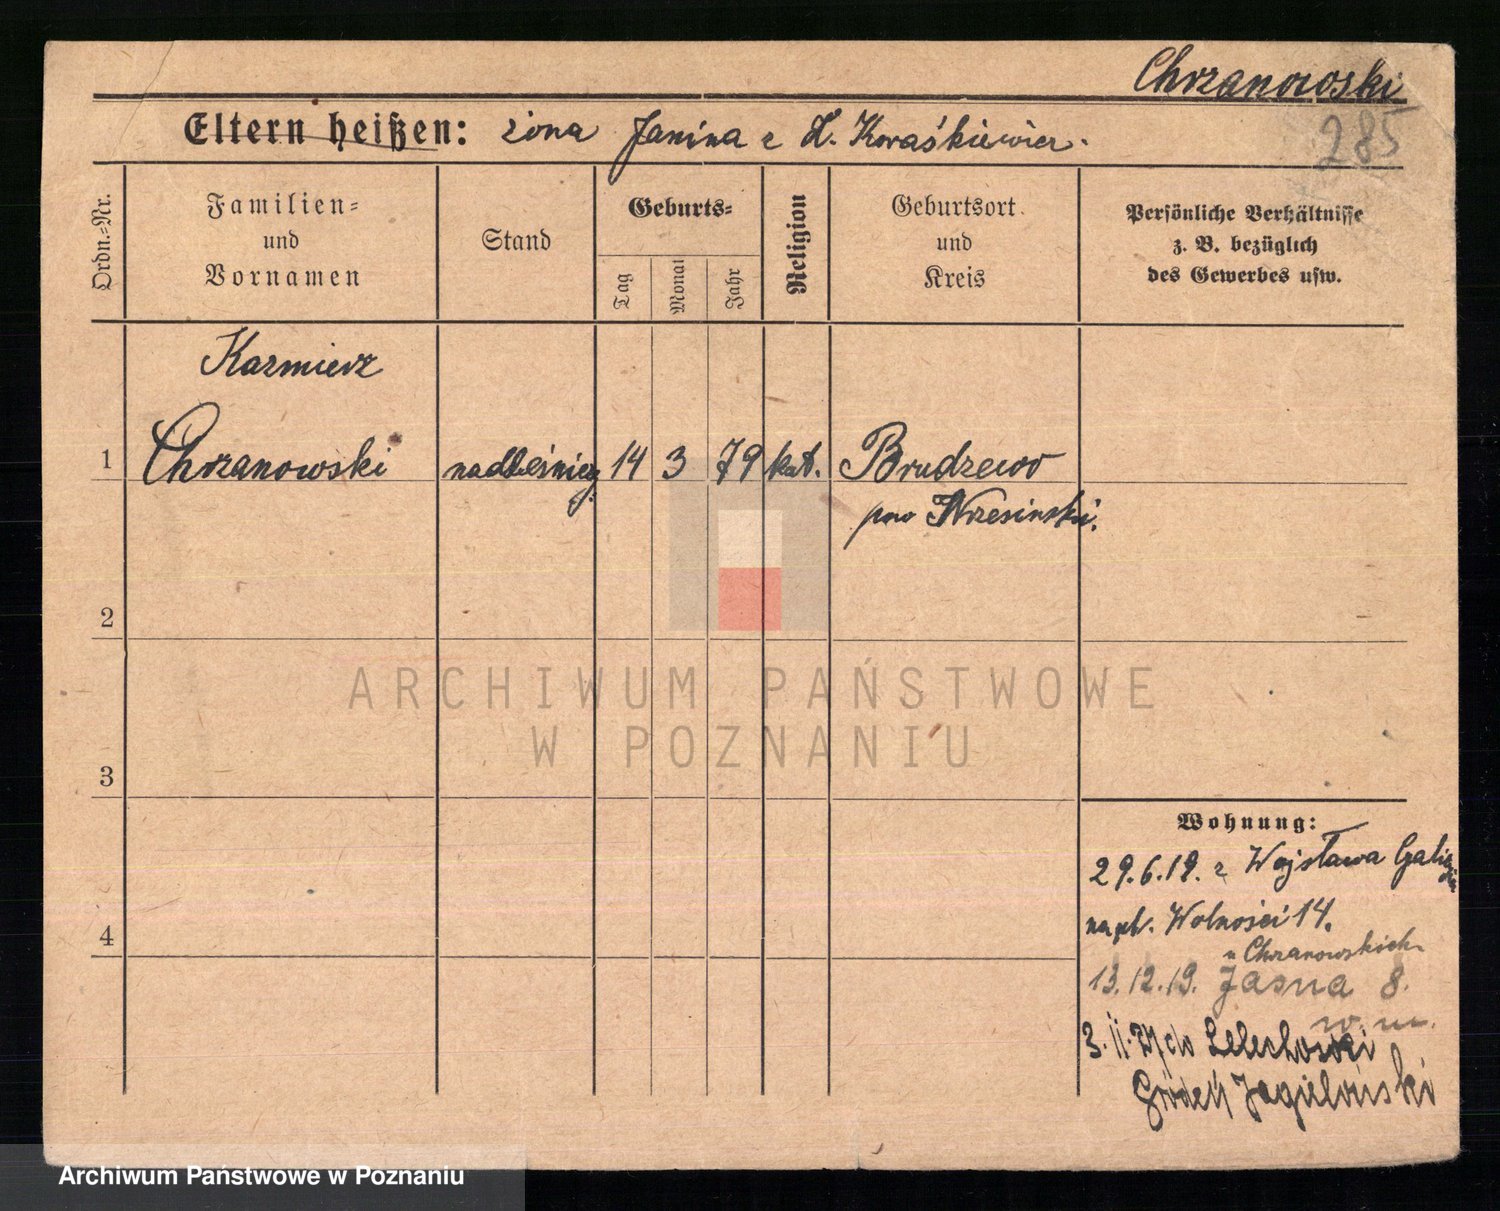 Chrzanowski
285
Eltern heißen: żona Janina z d. Koraśkiewicz.
Ordn.-Nr.
Familien-
und
Vornamen
Stand
Geburts-
Tag
Monat
Jahr
Religion
Geburtsort
und
Kreis
Persönliche Verhältnisse
z. B. bezüglich
des Gewerbes usw.
Kazmierz
1 Chrzanowski nadleśniczy 14 3 79 kat. Brudzewo
pow Wrzesiński.
2
3
4
Wohnung:
29.6.19. z Wojsława Galicja
na pl. Wolności 14.
u Chrzanowskich
13.12.19. Jasna 8.
w. m.
3. II. do Lelechowki
Gródek Jagieloński
ARCHIWUM PAŃSTWOWE
W POZNANIU
Archiwum Państwowe w Poznaniu